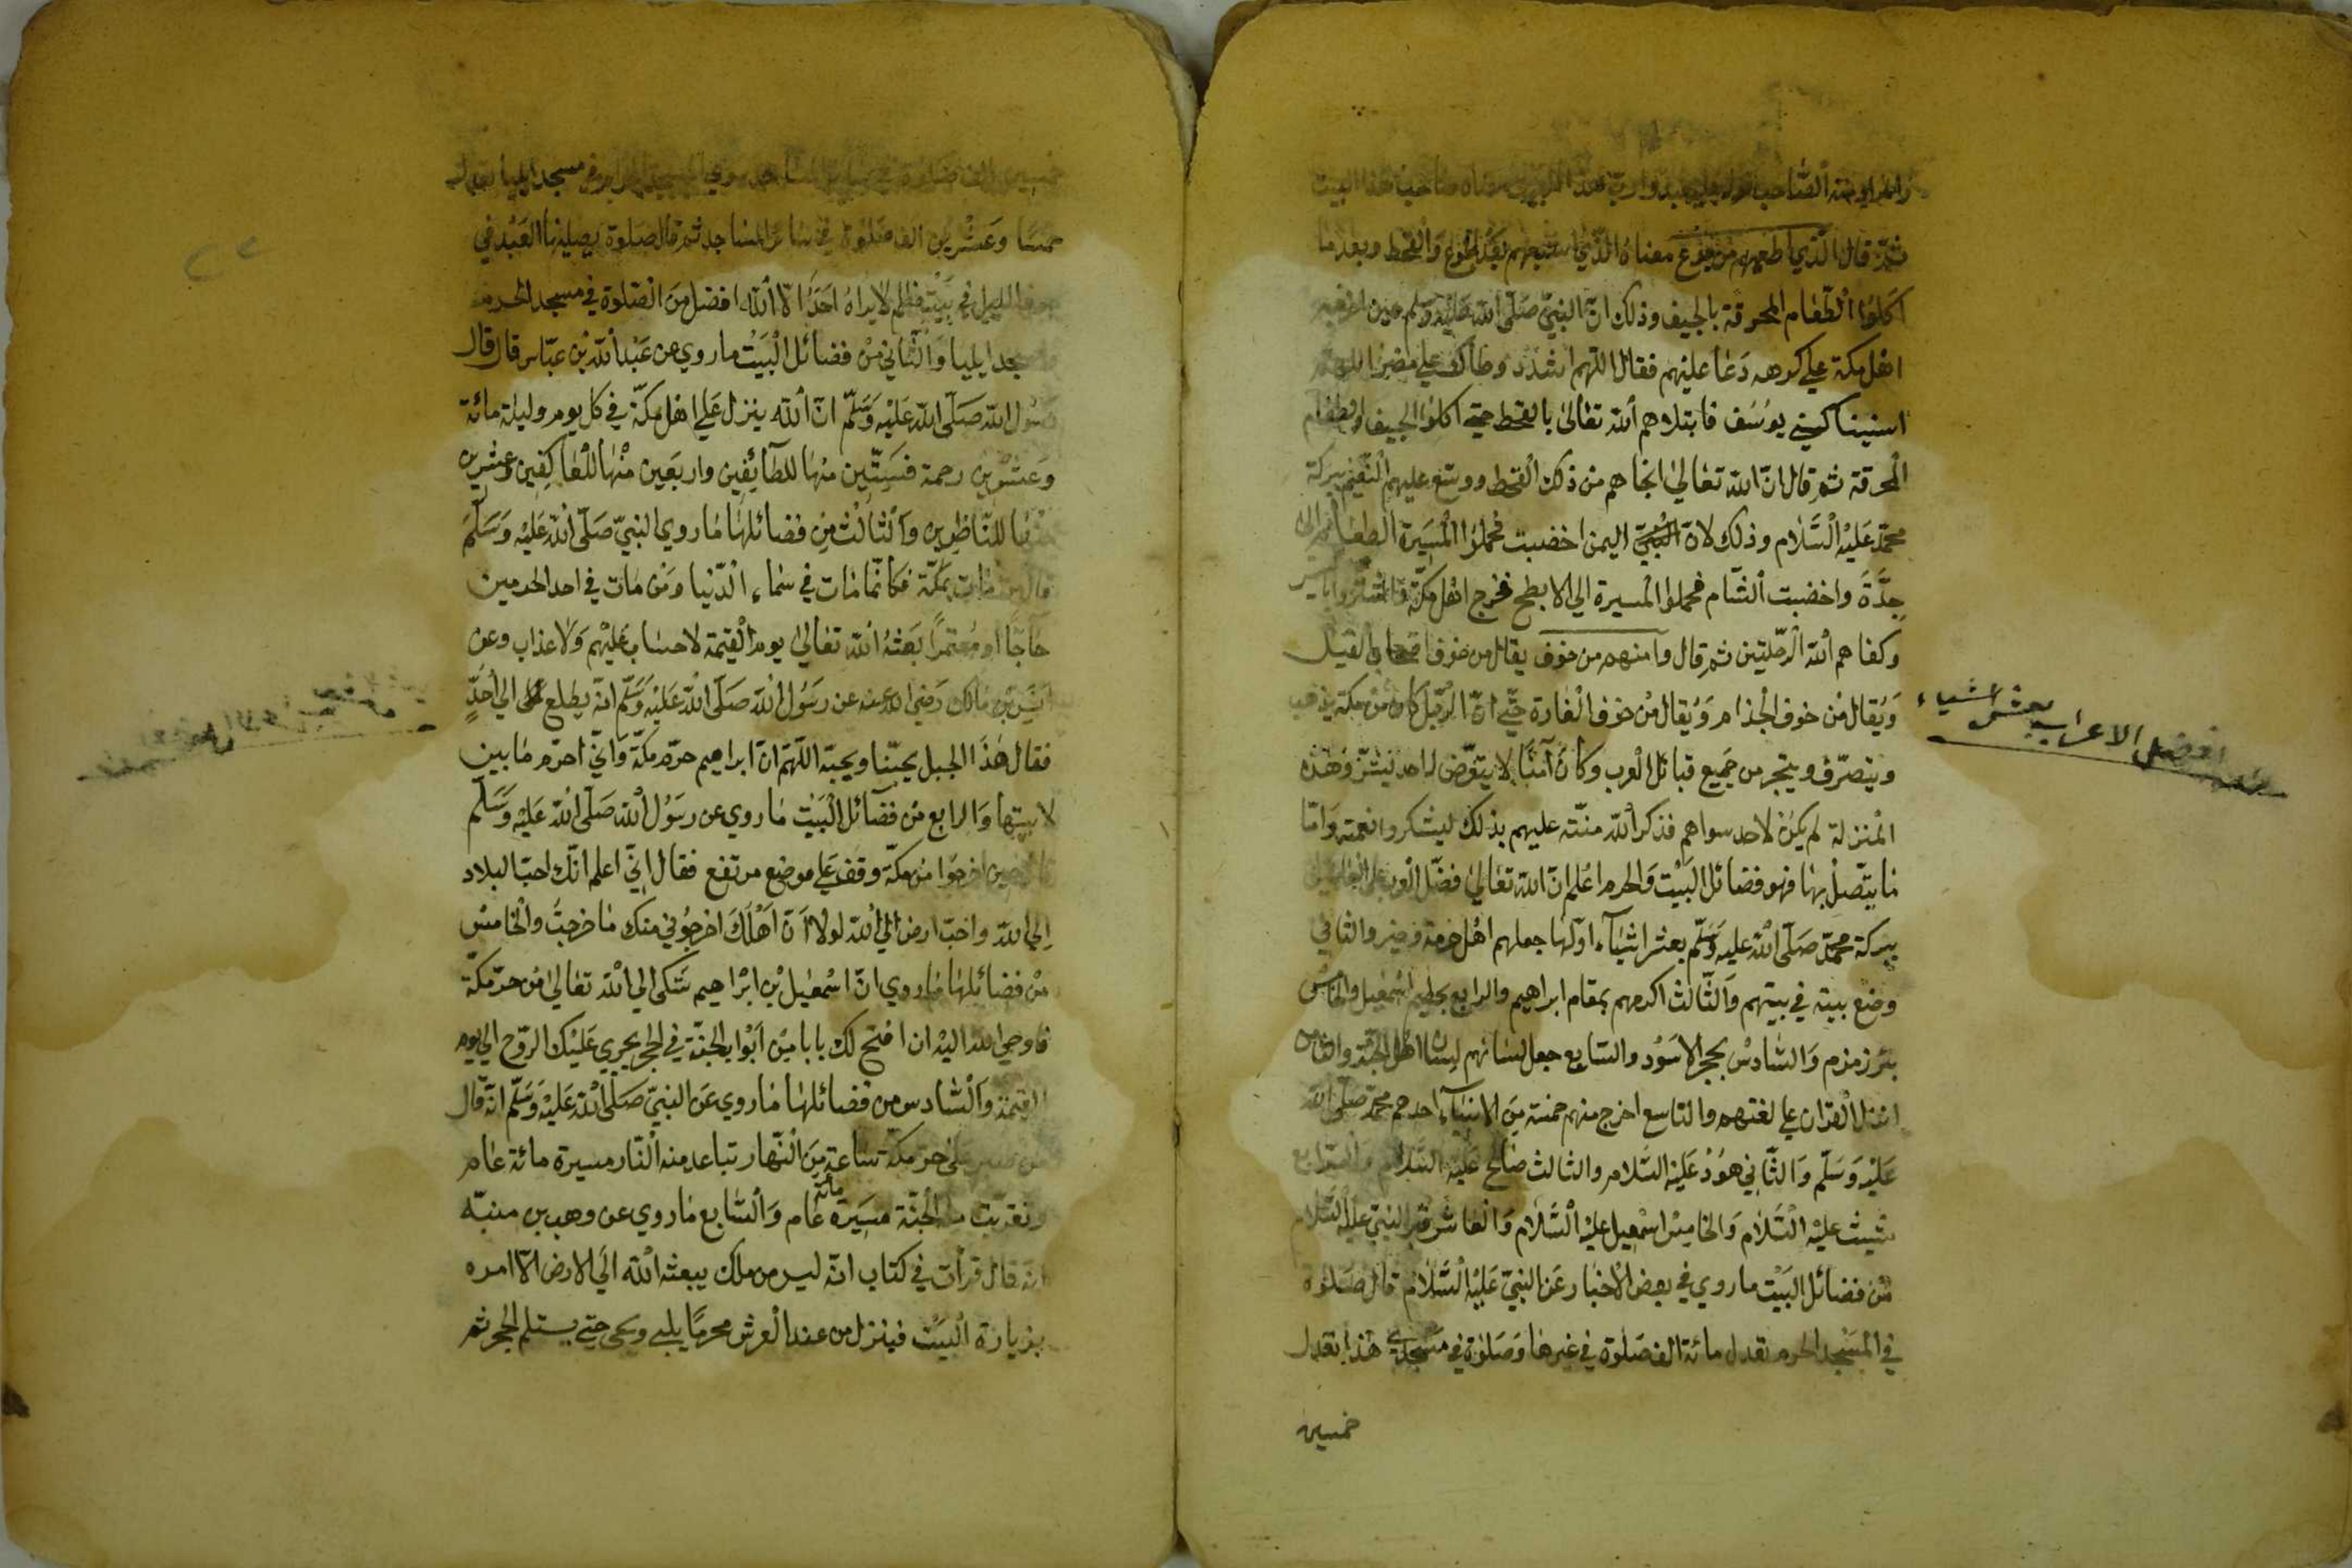 ثمّ قال الّذي اطعمهم من جوع معناه الّذي اشبعهم بعد الجوع والقحط وبعد ما
اكلوا الطّعام المحرقة بالجيف وذلك انّ النّبيّ صلّى الله عليه وسلم حين
اهل مكة علي كرهه دعا عليهم فقال اللّهم اشدد وطأتك علي مضر اللهم
اسنينا كسني يوسف فابتلاهم الله تعالى بالقحط حتي اكلوا الجيف والطعام
المحرقة ثم قال انّ الله تعالي انجاهم من ذلك القحط ووسّع عليهم النّعيم ببركة
محمّد عليه السّلام وذلك لانّ اليمن اخضبت فحملوا المسيرة الطعام الى
جدّة واخضبت الشّام فحملوا المسيرة الي الابطح فخرج اهل مكّة
وكفاهم الله الرّحلتين ثم قال وآمنهم من خوف يقال من خوف اصحاب الفيل
ويقال من خوف الجذام ويقال من خوف الغارة حتّي انّ الرّجل كان من مكة
ويتصرّف ويتجر من جميع قبائل العرب وكان آمنًا لا يتعرّض له احد بشرّ وهذه
المنزلة لم يكن لاحد سواهم فذكر الله منّته عليهم بذلك ليشكروا نعمته وامّا
ما يتّصل بها فهو فضائل البيت والحرم اعلم انّ الله تعالي فضّل العرب علي
ببركة محمّد صلّى الله عليه وسلّم بعشر اشياء اوّلها جعلهم اهل حرمه والثاني
وضع بيته في بيتهم والثّالث اكرمهم بمقام ابراهيم والرابع بحطيم اسمعيل والخامس
بئر زمزم والسّادس بحجر الاسود والسّابع جعل لسانهم لسان اهل الجنّة والثامن
انزل القران علي لغتهم والتاسع اخرج منهم خمسة من الانبياء احدهم محمّد صلّى الله
عليه وسلّم والثّاني هود عليه السّلام والثالث صالح عليه السّلام والرّابع
شيث عليه السّلام والخامس اسمعيل عليه السّلام والعاشر قبر النبيّ عليه السّلام
من فضائل البيت ما روي في بعض الاخبار عن النبيّ عليه السّلام قال صلوة
في المسجد الحرم تعدل مائة الف صلوة في غيرها وصلوة في مسجدي هذا تعدل
خمسين
افضل الاعراب بعشر اشياء
خمسًا وعشرين الف صلوة في سائر المساجد ثم قال الصلوة يصليها العبد في
جوف الليل في بيت مظلم لا يراه احد الّا الله افضل من الصّلوة في مسجد الحرم
ايليا والثّاني من فضائل البيت ما روي عن عبد الله بن عبّاس قال قال
رسول الله صلّى الله عليه وسلّم انّ الله ينزل علي اهل مكّة في كل يوم وليلة مائة
وعشرين رحمة فستّين منها للطآئفين واربعين منها للعاكفين وعشرين
منها للنّاظرين والثالث من فضائلها ما روي النبيّ صلّى الله عليه وسلّم
قال من مات بمكّة فكانّما مات في سماء الدّنيا ومن مات في احد الحرمين
حاجًّا او معتمرًا بعثه الله تعالي يوم القيمة لا حساب عليهم ولا عذاب وعن
انس بن مالك رضي الله عنه عن رسول الله صلّى الله عليه وسلّم انّه يطلع الي احدٍ
فقال هذا الجبل يحبّنا ويحبّه اللّهمّ انّ ابراهيم حرّم مكّة وانّي احرّم ما بين
لابيتها والرابع من فضآئل البيت ما روي عن رسول الله صلّى الله عليه وسلّم
حين اخرجوا من مكّة وقف علي موضع مرتفع فقال انّي اعلم انّك احبّ البلاد
الي الله واحبّ ارض الي الله لولا انّ اهلك اخرجوني منك ما خرجت والخامس
من فضائلها ما روي انّ اسمعيل بن ابراهيم شكى الي الله تعالي من حرّ مكّة
فاوحي الله اليه ان افتح لك بابا من ابواب الجنّة في الحجر يجري عليك الروح الي يوم
القيمة والسّادس من فضائلها ما روي عن النبيّ صلّى الله عليه وسلّم انّه قال
من صبر على حرّ مكّة ساعة من النّهار تباعد منه النّار مسيرة مائة عام
وتقرّبت منه الجنّة مسيرة مائة عام والسّابع ما روي عن وهب بن منبّه
انّه قال قرأت في كتاب انّه ليس من ملك يبعثه الله الي الارض الّا امره
بزيارة البيت فينزل من عند العرش محرمًا يلبي حتي يستلم الحجر ثم